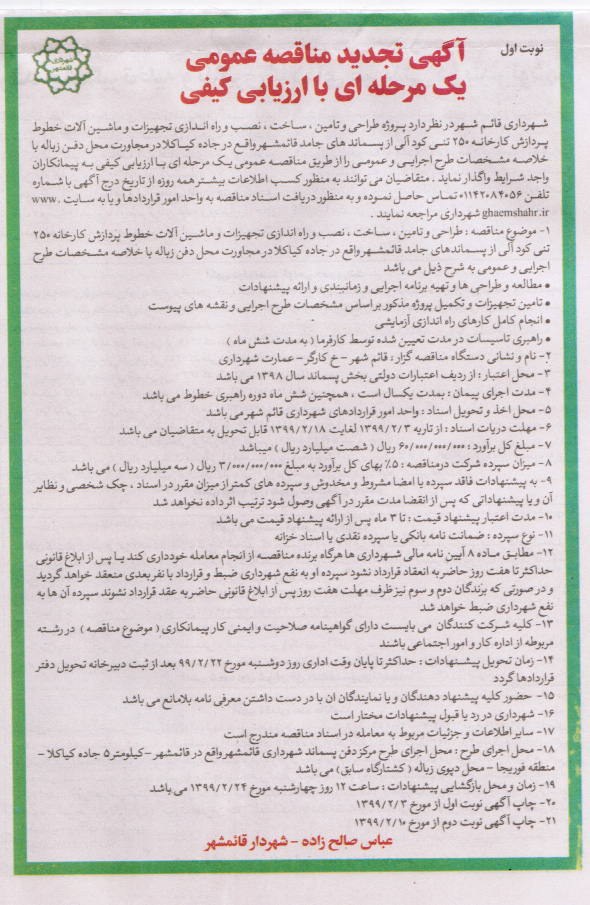 نوبت اول
آگهی تجدید مناقصه عمومی
یک مرحله ای با ارزیابی کیفی
شهرداری
قائمشهر
شهرداری قائم شهر در نظر دارد پروژه طراحی و تامین ، ساخت ، نصب و راه اندازی تجهیزات و ماشین آلات خطوط
پردازش کارخانه ۲۵۰ تنی کود آلی از پسماند های جامد قائمشهر واقع در جاده کیاکلا در مجاورت محل دفن زباله با
خلاصه مشخصات طرح اجرایی و عمومی را از طریق مناقصه عمومی یک مرحله ای با ارزیابی کیفی به پیمانکاران
واجد شرایط واگذار نماید . متقاضیان می توانند به منظور کسب اطلاعات بیشتر همه روزه از تاریخ درج آگهی با شماره
تلفن ۰۱۱۴۲۰۸۴۰۵۶ تماس حاصل نموده و به منظور دریافت اسناد مناقصه به واحد امور قراردادها و یا به سایت www.
ghaemshahr.ir شهرداری مراجعه نمایند .
۱- موضوع مناقصه : طراحی و تامین ، ساخت ، نصب و راه اندازی تجهیزات و ماشین آلات خطوط پردازش کارخانه ۲۵۰
تنی کود آلی از پسماندهای جامد قائمشهر واقع در جاده کیاکلا در مجاورت محل دفن زباله با خلاصه مشخصات طرح
اجرایی و عمومی به شرح ذیل می باشد
• مطالعه و طراحی ها و تهیه برنامه اجرایی و زمانبندی و ارائه پیشنهادات
• تامین تجهیزات و تکمیل پروژه مذکور بر اساس مشخصات طرح اجرایی و نقشه های پیوست
• انجام کامل کارهای راه اندازی آزمایشی
• راهبری تاسیسات در مدت تعیین شده توسط کارفرما ( به مدت شش ماه )
۲- نام و نشانی دستگاه مناقصه گزار : قائم شهر – خ کارگر – عمارت شهرداری
۳- محل اعتبار : از ردیف اعتبارات دولتی بخش پسماند سال ۱۳۹۸ می باشد
۴- مدت اجرای پیمان : بمدت یکسال است ، همچنین شش ماه دوره راهبری خطوط می باشد
۵- محل اخذ و تحویل اسناد : واحد امور قراردادهای شهرداری قائم شهر می باشد
۶- مهلت دریات اسناد : از تاریه ۱۳۹۹/۲/۳ لغایت ۱۳۹۹/۲/۱۸ قابل تحویل به متقاضیان می باشد
۷- مبلغ کل برآورد : ۶۰/۰۰۰/۰۰۰/۰۰۰ ریال ( شصت میلیارد ریال ) میباشد
۸- میزان سپرده شرکت درمناقصه : ۵٪ بهای کل برآورد به مبلغ ۳/۰۰۰/۰۰۰/۰۰۰ ریال ( سه میلیارد ریال ) می باشد
۹- به پیشنهادات فاقد سپرده با امضا مشروط و مخدوش و سپرده های کمتر از میزان مقرر در اسناد ، چک شخصی و نظایر
آن و یا پیشنهاداتی که پس از انقضا مدت مقرر در آگهی وصول شود ترتیب اثر داده نخواهد شد
۱۰- مدت اعتبار پیشنهاد قیمت : تا ۳ ماه پس از ارائه پیشنهاد قیمت می باشد
۱۱- نوع سپرده : ضمانت نامه بانکی یا سپرده نقدی یا اسناد خزانه
۱۲- مطابق ماده ۸ آیین نامه مالی شهرداری ها هرگاه برنده مناقصه از انجام معامله خودداری کند یا پس از ابلاغ قانونی
حداکثر تا هفت روز حاضر به انعقاد قرارداد نشود سپرده او به نفع شهرداری ضبط و قرارداد با نفر بعدی منعقد خواهد گردید
و در صورتی که برندگان دوم و سوم نیز ظرف مهلت هفت روز پس از ابلاغ قانونی حاضر به عقد قرارداد نشوند سپرده آن ها به
نفع شهرداری ضبط خواهد شد
۱۳- کلیه شرکت کنندگان می بایست دارای گواهینامه صلاحیت و ایمنی کار پیمانکاری ( موضوع مناقصه ) در رشته
مربوطه از اداره کار و امور اجتماعی باشند
۱۴- زمان تحویل پیشنهادات : حداکثر تا پایان وقت اداری روز دوشنبه مورخ ۹۹/۲/۲۲ بعد از ثبت دبیرخانه تحویل دفتر
قراردادها گردد
۱۵- حضور کلیه پیشنهاد دهندگان و یا نمایندگان ان با در دست داشتن معرفی نامه بلامانع می باشد
۱۶- شهرداری در رد یا قبول پیشنهادات مختار است
۱۷- سایر اطلاعات و جزئیات مربوط به معامله در اسناد مناقصه مندرج است
۱۸- محل اجرای طرح : محل اجرای طرح مرکز دفن پسماند شهرداری قائمشهر واقع در قائمشهر –کیلومتر۵ جاده کیاکلا –
منطقه فوریجا – محل دپوی زباله ( کشتارگاه سابق ) می باشد
۱۹- زمان و محل بازگشایی پیشنهادات : ساعت ۱۲ روز چهارشنبه مورخ ۱۳۹۹/۲/۲۴ می باشد
۲۰- چاپ آگهی نوبت اول از مورخ ۱۳۹۹/۲/۳
۲۱- چاپ آگهی نوبت دوم از مورخ ۱۳۹۹/۲/۱۰
عباس صالح زاده – شهردار قائمشهر